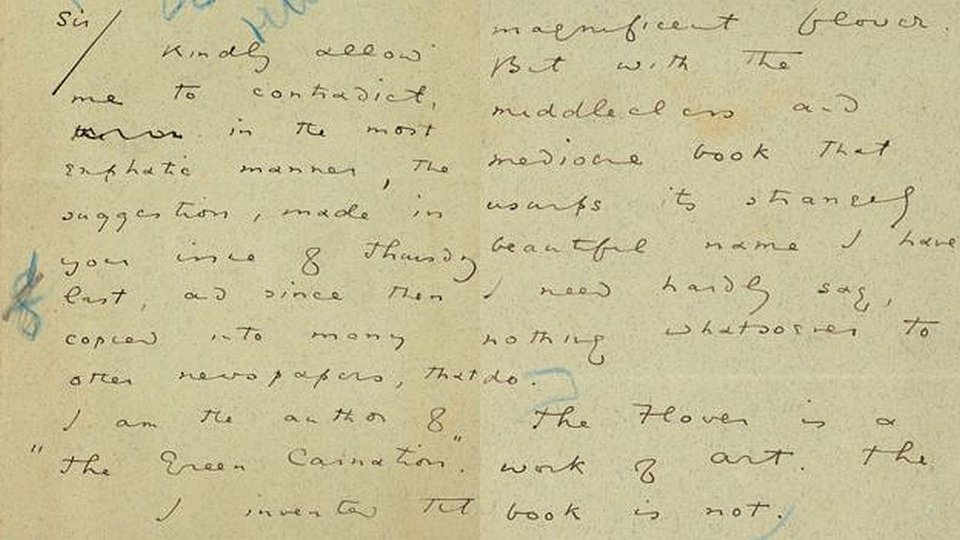 Sir
Kindly allow
me to contradict,
in the most
emphatic manner, the
suggestion, made in
your issue of Thursday
last, and since then
copied into many
other newspapers, that
I am the author of
"The Green Carnation".
I invented that
magnificent flower.
But with the
middleclass and
mediocre book that
usurps its strangely
beautiful name I have
I need hardly say,
nothing whatsoever to
do.
The Flower is a
work of art. The
book is not.